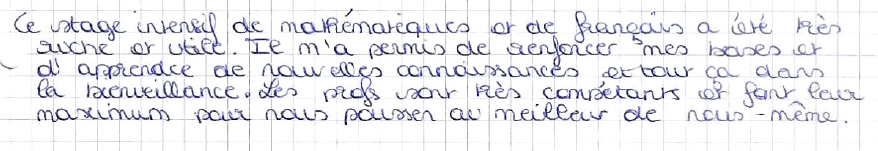 Ce stage intensif de mathématiques et de français a été très
riche et utile. Il m'a permis de renforcer mes bases et
d'apprendre de nouvelles connaissances et tout ça dans
la bienveillance. Les profs sont très compétants et font leur
maximum pour nous pousser au meilleur de nous-même.